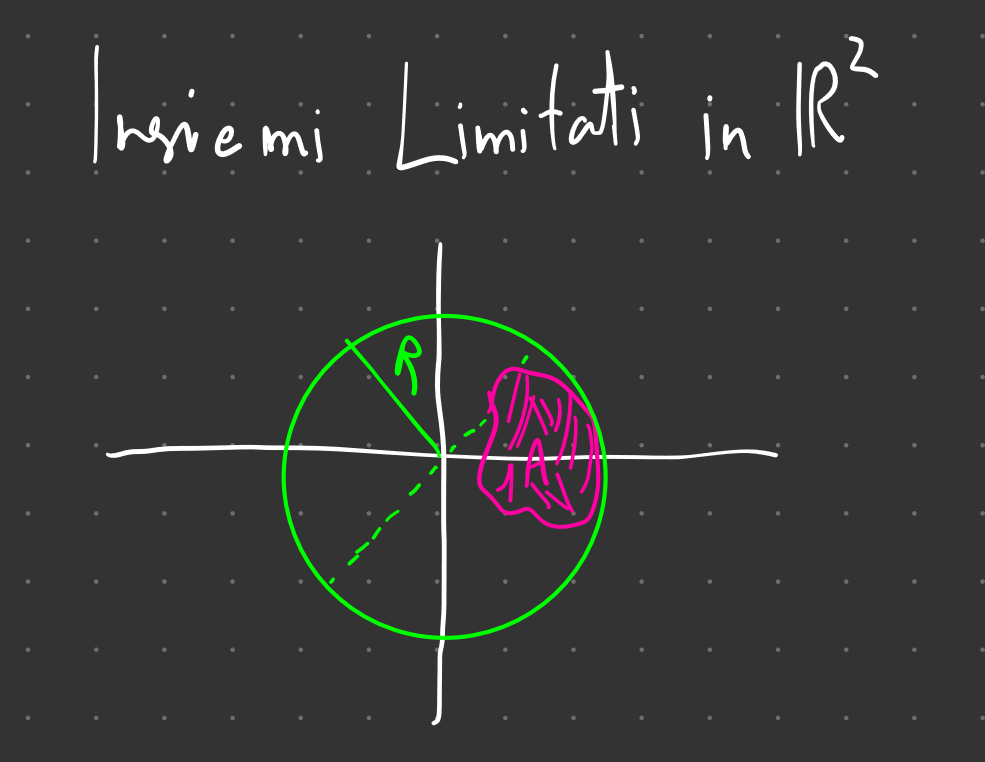 Insiemi Limitati in ℝ²
R
A